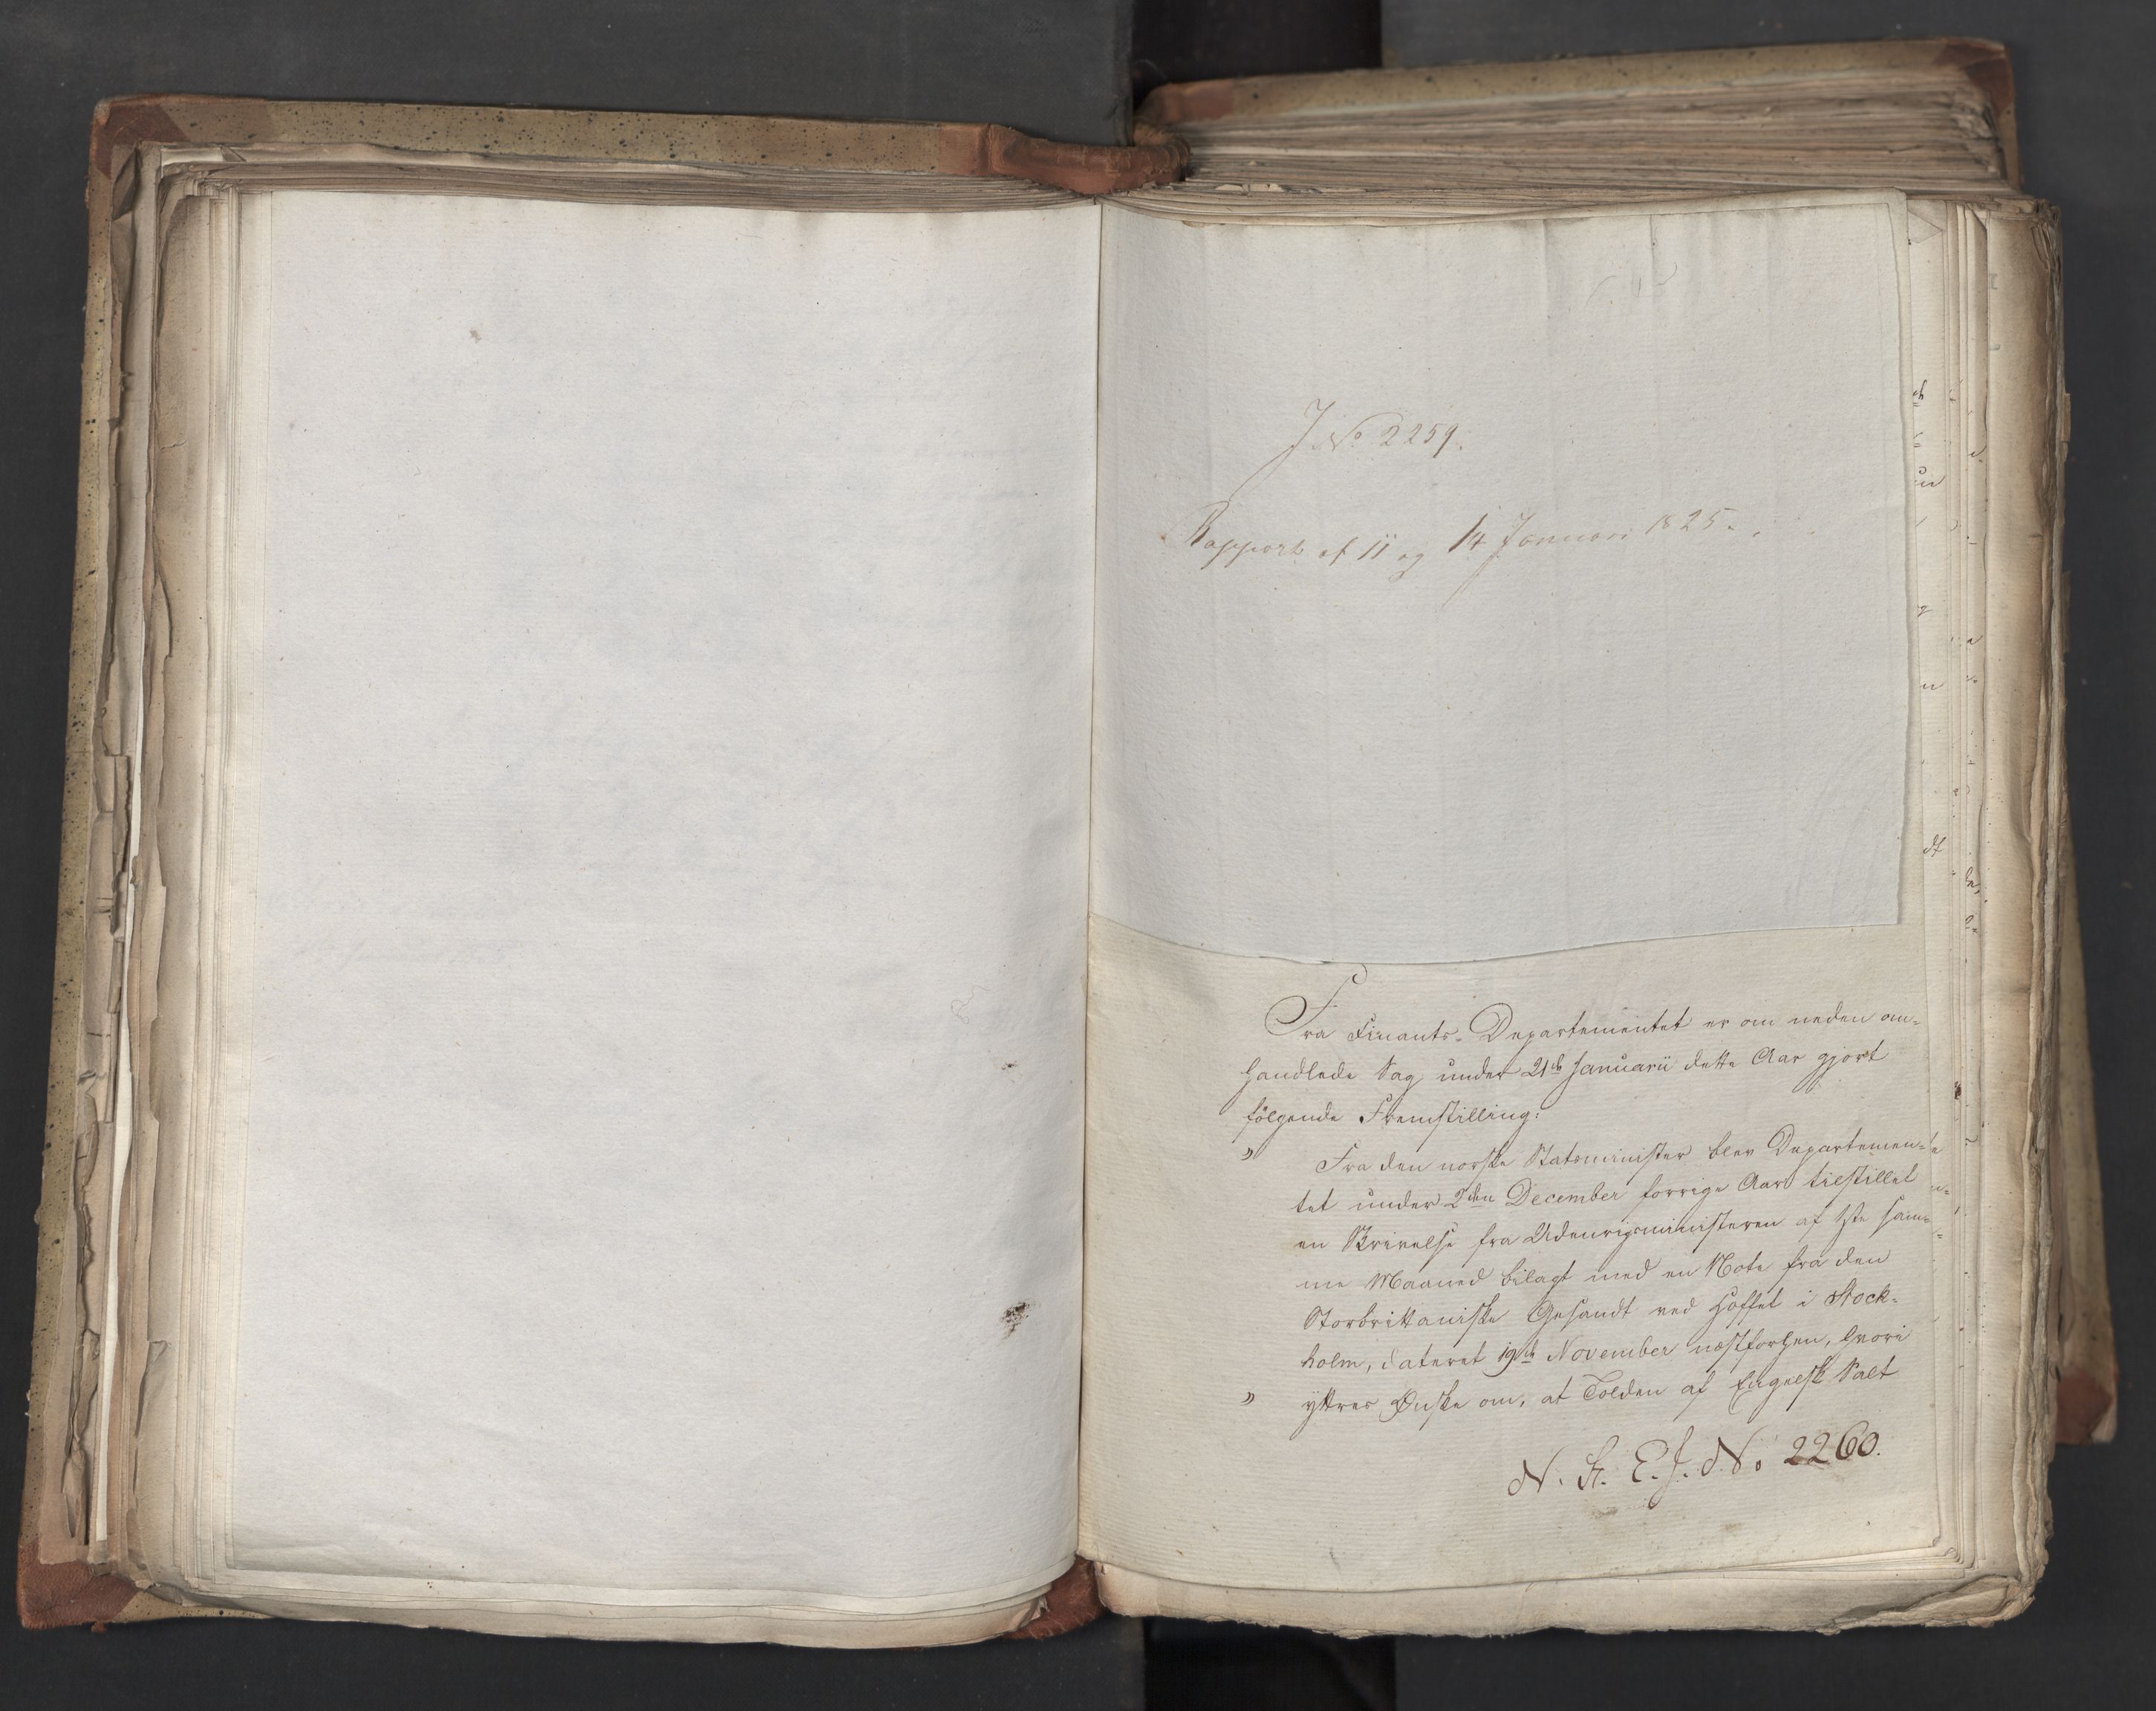 J. No 2259.
Rapport af 11 og 14 Januari 1825.
Fra Finants-Departementet er om neden om-
handlede Sag under 21de Januarii dette Aar gjort
følgende Fremstilling:
" Fra den norske Statsminister blev Departemen-
tet under 2den December forrige Aar tilstillet
en Skrivelse fra Udenrigsministeren af 1ste sam-
me Maaned bilagt med en Note fra den
Storbrittaniske Gesandt ved Hoffet i Stock-
holm, dateret 19de November næstforhen, hvori
" yttres Ønske om, at Tolden af Engelsk Salt
N. St. E. J. No 2260.